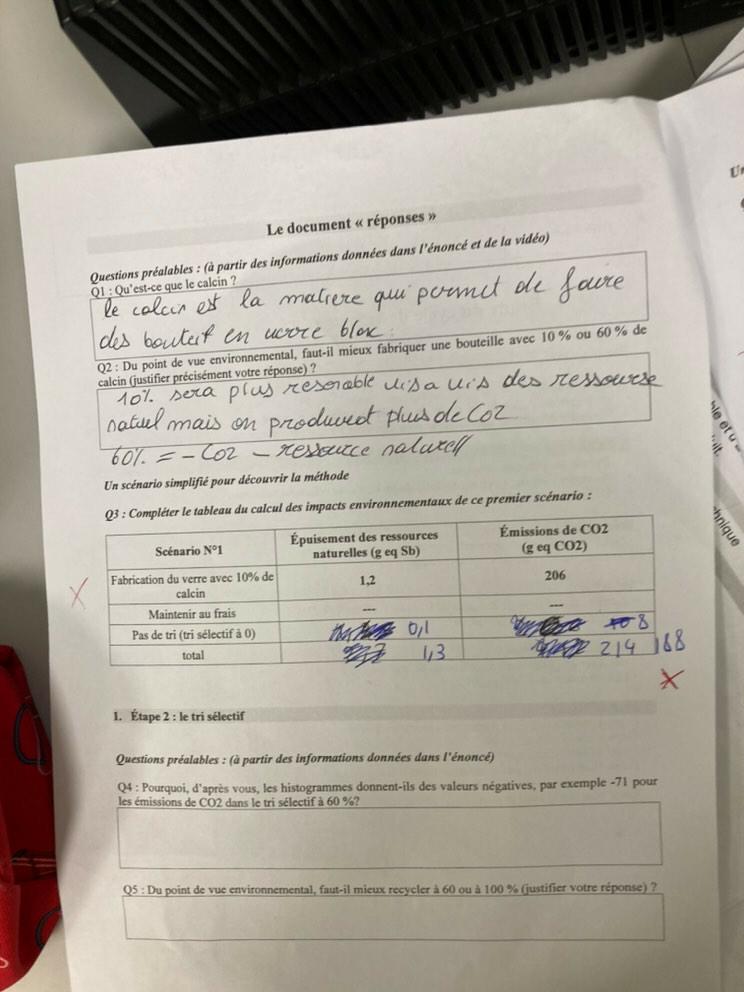 Le document « réponses »
Questions préalables : (à partir des informations données dans l'énoncé et de la vidéo)
Q1 : Qu'est-ce que le calcin ?
le calcin est la matiere qui permet de faire
des en verre
Q2 : Du point de vue environnemental, faut-il mieux fabriquer une bouteille avec 10 % ou 60 % de
calcin (justifier précisément votre réponse) ?
10% sera plus resonable vis a vis des ressourse
natuel mais on produiret plus de Co2
60% = - Co2 - ressource naturell
Un scénario simplifié pour découvrir la méthode
Q3 : Compléter le tableau du calcul des impacts environnementaux de ce premier scénario :
Scénario N°1
Épuisement des ressources
naturelles (g eq Sb)
Émissions de CO2
(g eq CO2)
Fabrication du verre avec 10% de
calcin
1,2
206
Maintenir au frais
---
---
Pas de tri (tri sélectif à 0)
0,1
8
total
1,3
214 188
1. Étape 2 : le tri sélectif
Questions préalables : (à partir des informations données dans l'énoncé)
Q4 : Pourquoi, d'après vous, les histogrammes donnent-ils des valeurs négatives, par exemple -71 pour
les émissions de CO2 dans le tri sélectif à 60 %?
Q5 : Du point de vue environnemental, faut-il mieux recycler à 60 ou à 100 % (justifier votre réponse) ?
ble et u
uit.
hnique